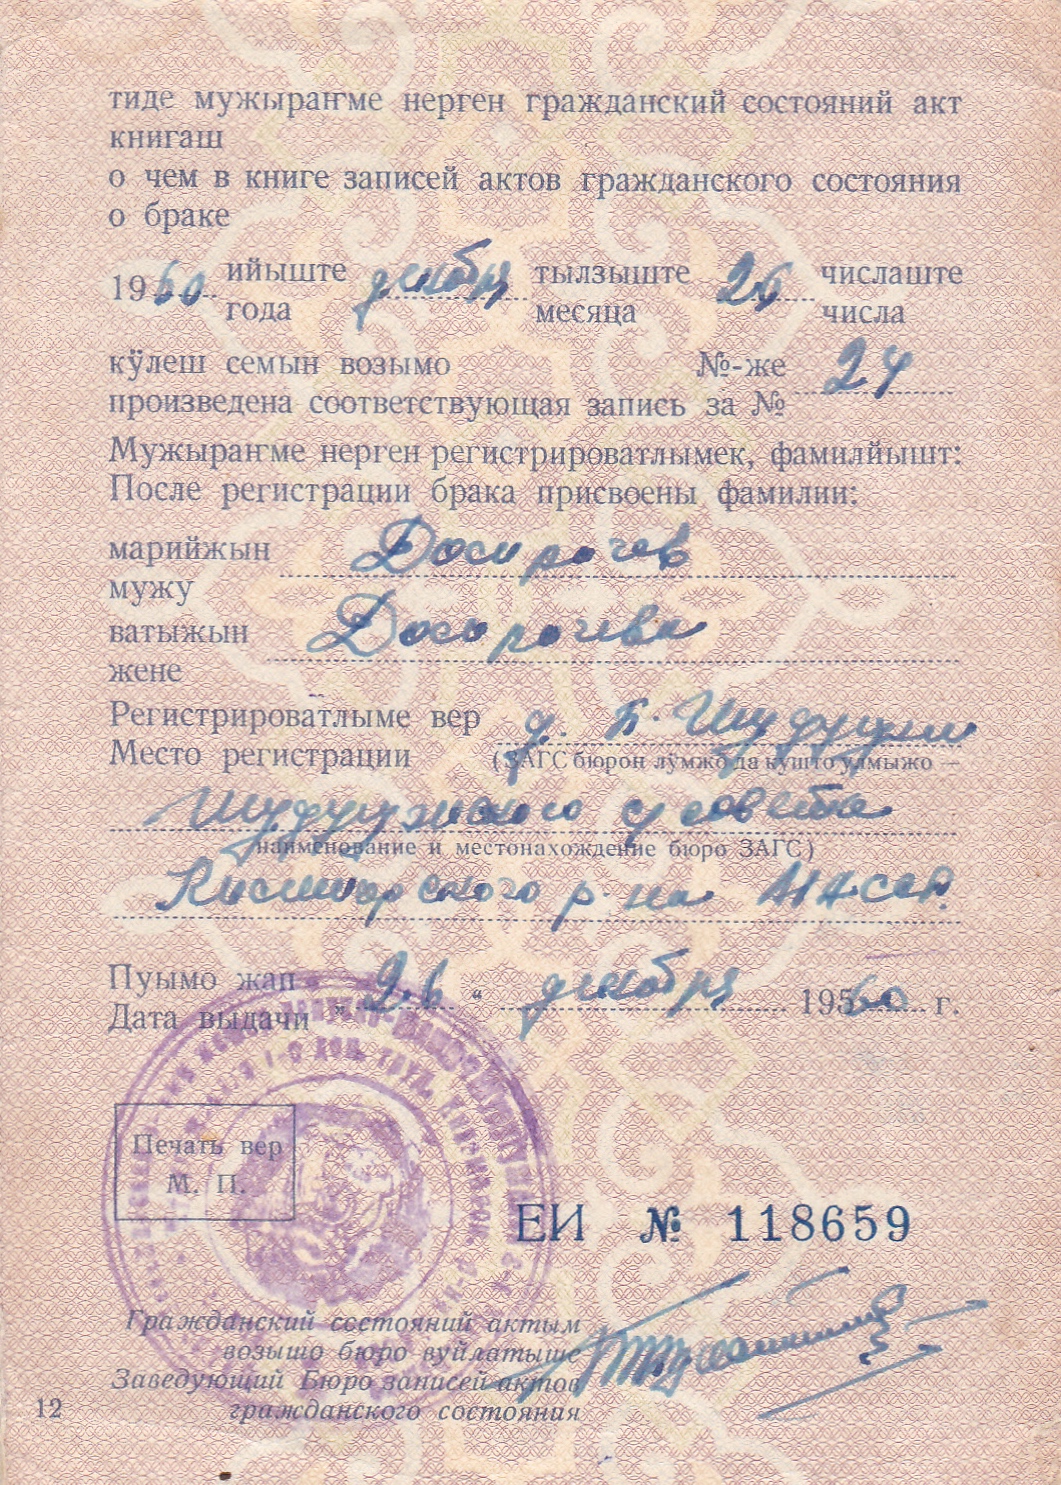 тиде мужыраҥме нерген гражданский состояний акт
книгаш
о чем в книге записей актов гражданского состояния
о браке
1960 ийыште декабря тылзыште 26 числаште
года месяца числа
кӱлеш семын возымо №-же 24
произведена соответствующая запись за №
Мужыраҥме нерген регистрироватлымек, фамилйышт:
После регистрации брака присвоены фамилии:
марийжын Досорочев
мужу
ватыжын Досорочева
жене
Регистрироватлыме вер д. Б-Шудугуж
Место регистрации (ЗАГС бюрон лӱмжӧ да кушто улмыжо —
Шудугужского с/совета
наименование и местонахождение бюро ЗАГС)
р-на МАССР.
Пуымо жап
Дата выдачи " 26 " декабря 1960 г.
Печать вер
М. П.
ЕИ № 118659
Гражданский состояний актым
возышо бюро вуйлатыше
Заведующий Бюро записей актов
гражданского состояния
12